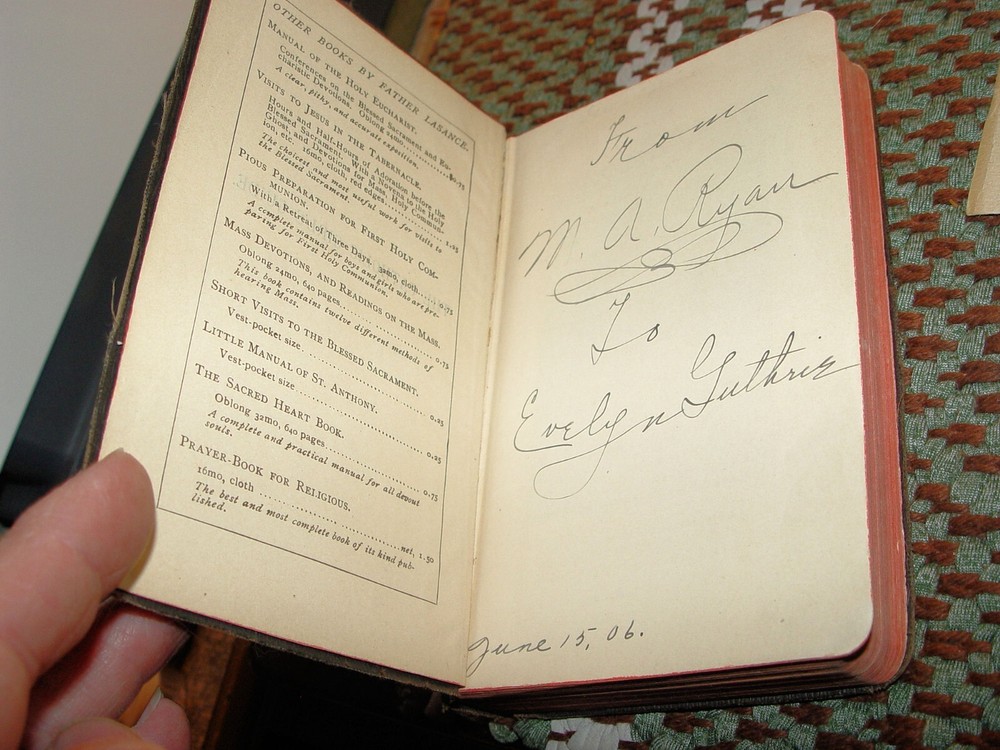 OTHER BOOKS BY FATHER LASANCE.
MANUAL OF THE HOLY EUCHARIST.
Conferences on the Blessed Sacrament and Eu-
charistic Devotions. Oblong 24mo..........$0.75
A clear, pithy, and accurate exposition.
VISITS TO JESUS IN THE TABERNACLE.
Hours and Half-Hours of Adoration before the
Blessed Sacrament. With a Novena to the Holy
Ghost, and Devotions for Mass, Holy Commun-
ion, etc. 16mo, cloth, red edges..........1.25
The choicest and most useful work for visits to
the Blessed Sacrament.
PIOUS PREPARATION FOR FIRST HOLY COM-
MUNION.
With a Retreat of Three Days. 32mo, cloth......0.75
A complete manual for boys and girls who are pre-
paring for First Holy Communion.
MASS DEVOTIONS, AND READINGS ON THE MASS.
Oblong 24mo, 640 pages..........0.75
This book contains twelve different methods of
hearing Mass.
SHORT VISITS TO THE BLESSED SACRAMENT.
Vest-pocket size..........0.25
LITTLE MANUAL OF ST. ANTHONY.
Vest-pocket size..........0.25
THE SACRED HEART BOOK.
Oblong 32mo, 640 pages..........0.75
A complete and practical manual for all devout
souls.
PRAYER-BOOK FOR RELIGIOUS.
16mo, cloth..........net, 1.50
The best and most complete book of its kind pub-
lished.
From
M. A. Ryan
To
Evelyn Guthrie
June 15, 06.